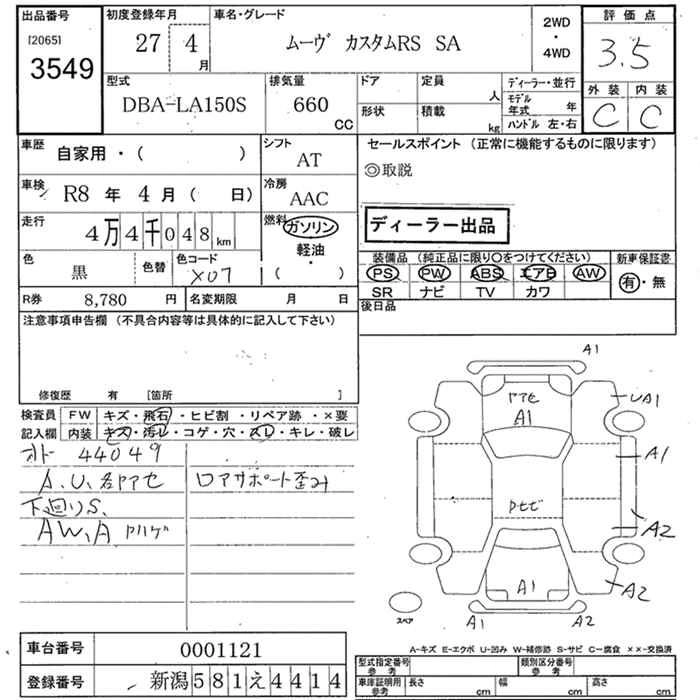 出品番号
[2065]
3549
初度登録年月
27 4 月
車名・グレード
ムーヴ カスタムRS SA
2WD
・
4WD
評価点
3.5
外装 内装
C C
型式
DBA-LA150S
排気量
660
CC
ドア
形状
定員
人
積載
kg
ディーラー・並行
モデル
年式 年
ハンドル 左・右
車歴
自家用・( )
シフト
AT
車検
R8 年 4 月 ( 日)
冷房
AAC
走行
4 万 4 千 0 4 8 km
燃料
ガソリン
軽油
・
( )
色
黒
色替
色コード
X07
R券 8,780 円
名変期限 月 日
セールスポイント (正常に機能するものに限ります)
◎取説
ディーラー出品
装備品 (純正品に限り○をつけてください)
PS PW ABS エアB AW
SR ナビ TV カワ
新車保証書
有・無
後日品
注意事項申告欄 (不具合内容等は具体的に記入して下さい)
修復歴 有 [箇所 ]
検査員
記入欄
FW キズ・飛石・ヒビ割・リペア跡・×要
内装 キズ・汚レ・コゲ・穴・スレ・キレ・破レ
オドー 44049
A.U.各ヤアセ
ロアサポート歪み
下廻りS.
AW、A
A1
ヤアセ
A1
UA1
A1
A2
A1
A2
A1
A2
スペア
A-キズ E-エクボ U-凹み W-補修跡 S-サビ C-腐食 ××-交換済
車台番号 0001121
登録番号 新潟 5 8 1 え 4 4 1 4
型式指定番号
参考
類別区分番号
参考
車庫証明用
参考
長さ cm
幅 cm
高さ cm